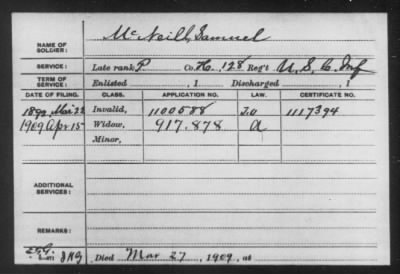 McNeill, Samuel
NAME OF SOLDIER:
SERVICE: Late rank P Co. H, 128 Reg't U. S. C. Inf
TERM OF SERVICE: Enlisted , 1 Discharged , 1
DATE OF FILING. CLASS. APPLICATION NO. LAW. CERTIFICATE NO.
Mar 22 Invalid, 1100588 1117394
1909 Apr 15 Widow, 917.878 a
Minor,
ADDITIONAL SERVICES:
REMARKS:
Died Mar 27, 1909, at